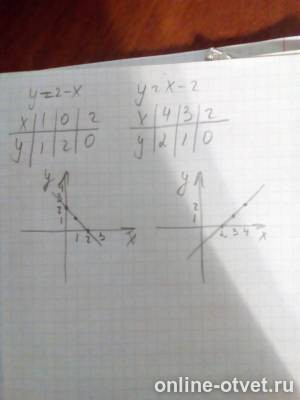 y=2-x y=x-2
x 1 0 2 x 4 3 2
y 1 2 0 y 2 1 0
y y
2 2
1 1
1 2 3 x 2 3 4 x
online-otvet.ru